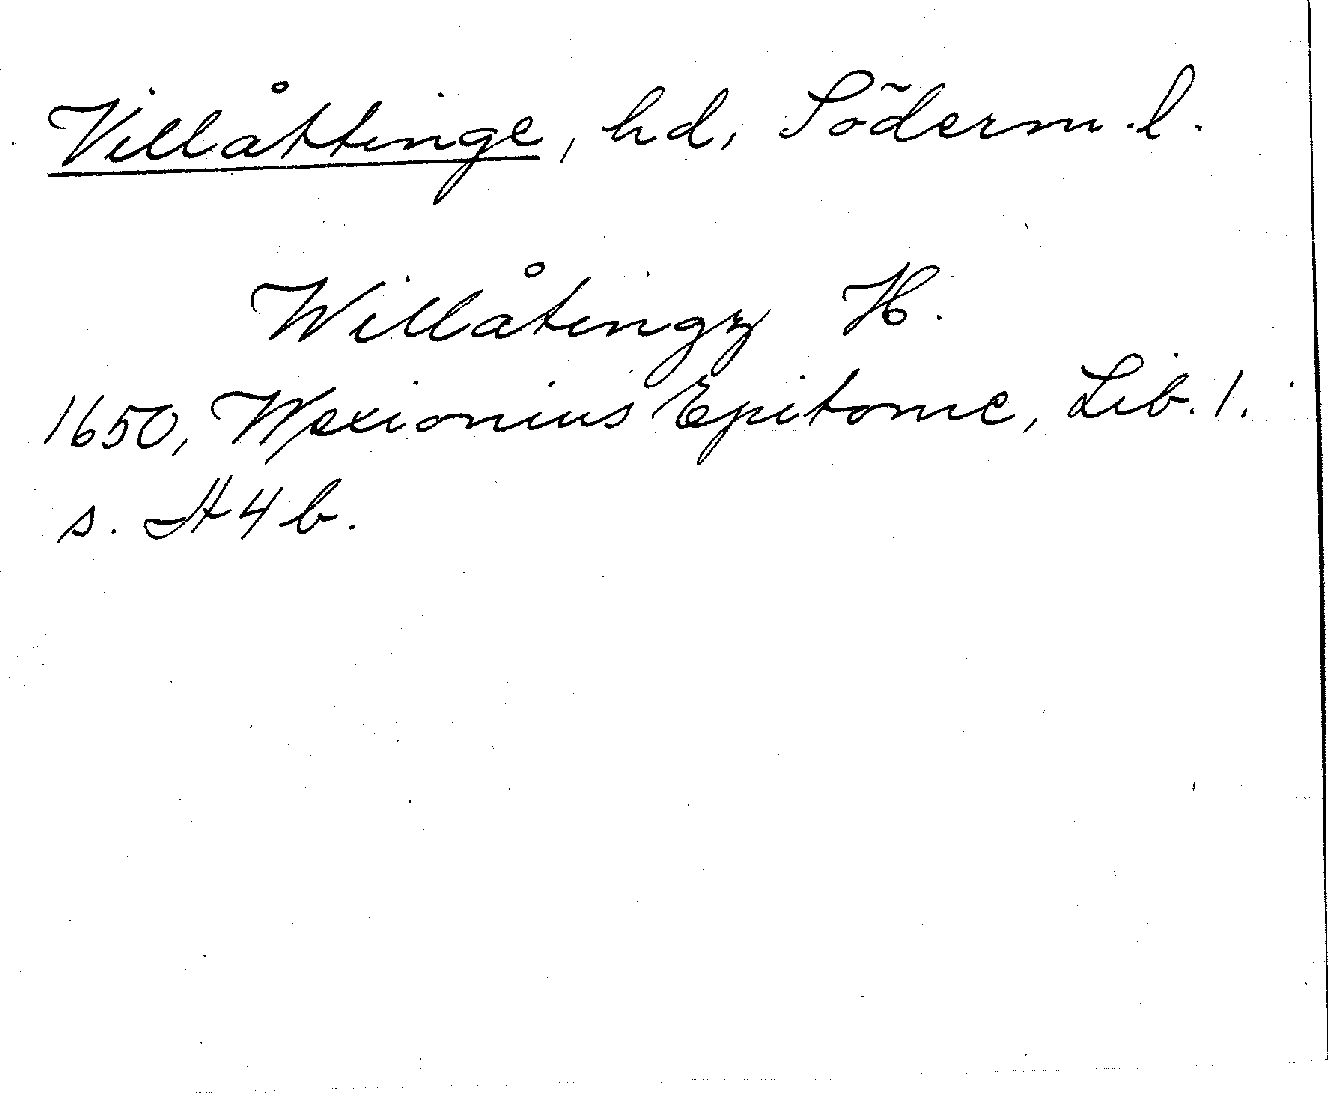 Villåttinge, hd, Söderm.l.
Willåtingz H.
1650, Wexionius Epitome, Lib. 1.
s. H4b.